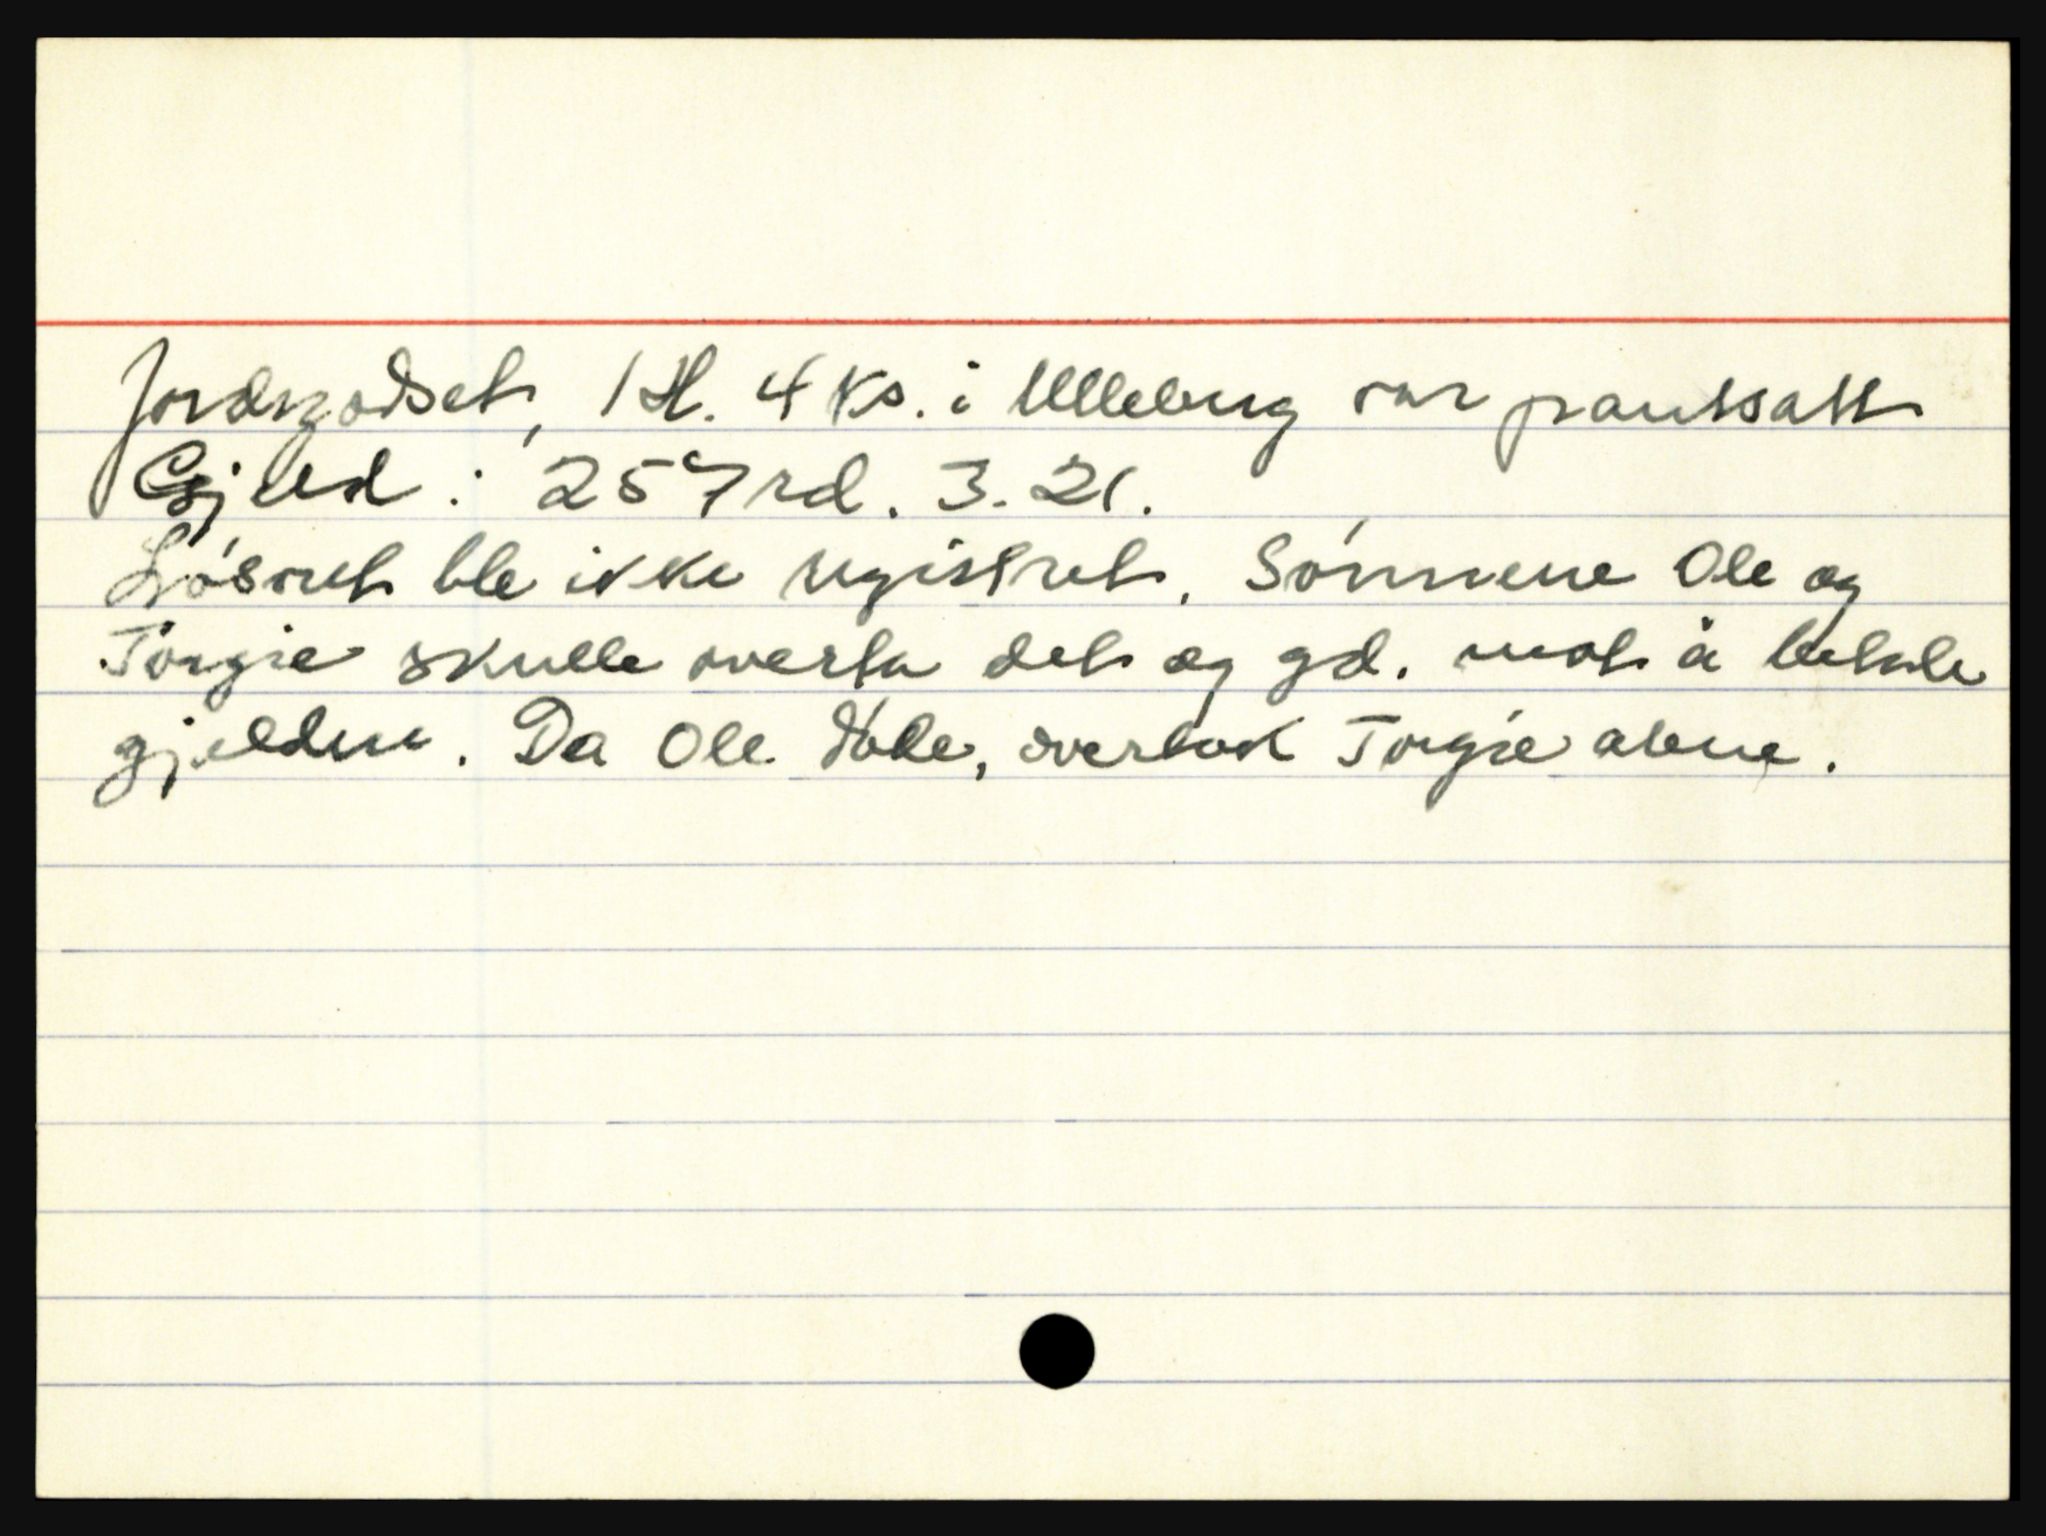 Jordegodset, 1 H. 4 ks. i Ulleberg var pantsatt
Gjeld: 257 rd. 3. 21.
Lösöret ble ikke registret. Sönnene Ole og
Torgie skulle overta det og gd. mot å betale
gjelden. Da Ole döde, overtok Torgie alene.